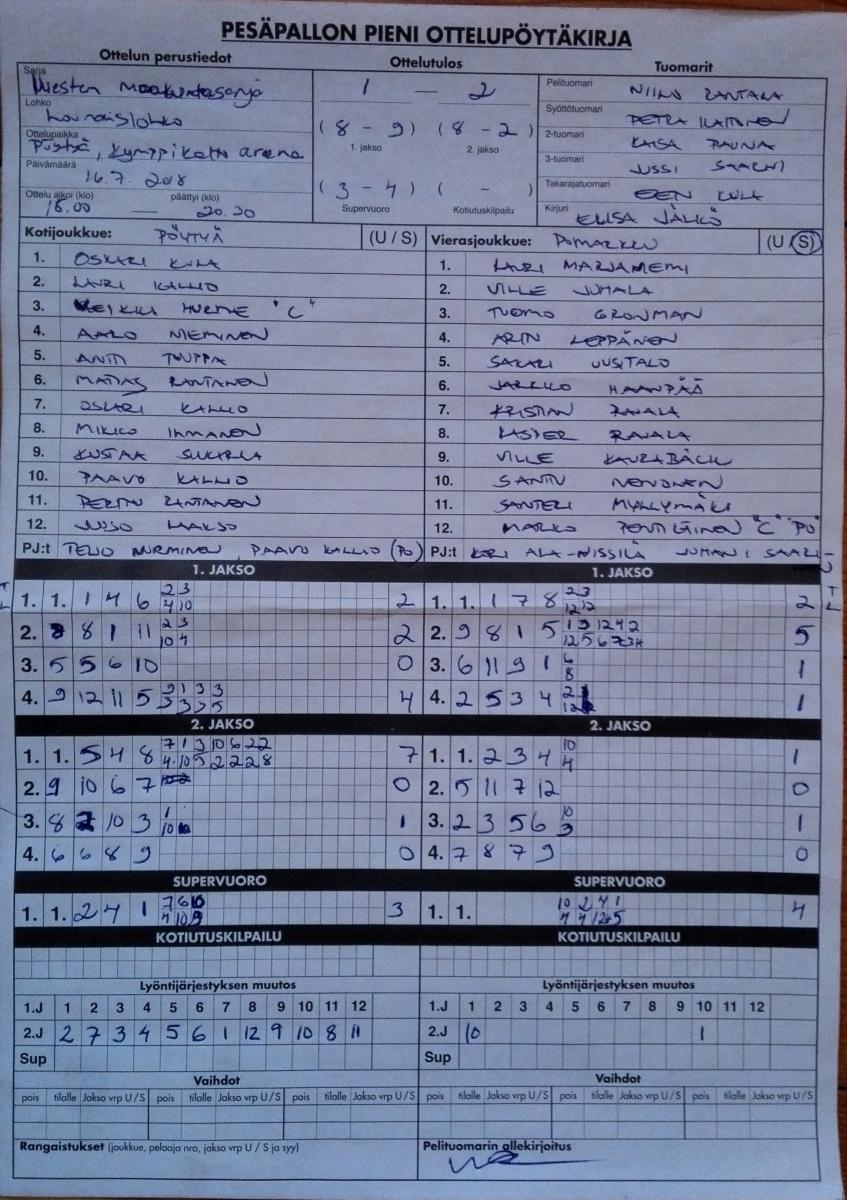 PESÄPALLON PIENI OTTELUPÖYTÄKIRJA
Ottelun perustiedot
Ottelutulos
Tuomarit
Sarja
Miesten Maakuntasarja
Lohko
Lounaislohko
Ottelupaikka
Pöytyä, Kymppikatto areena
Päivämäärä
16.7. 2018
Ottelu alkoi (klo) päättyi (klo)
18.00 — 20.30
1 — 2
(8 - 9) (8 - 2)
1. jakso 2. jakso
(3 - 4) ( - )
Supervuoro Kotiutuskilpailu
Pelituomari NIILO RANTALA
Syöttötuomari PETRA
2-tuomari KAISA PAUNA
3-tuomari JUSSI SAARNI
Takarajatuomari EEN KULA
Kirjuri ELISA JÄLKÖ
Kotijoukkue: PÖYTYÄ (U / S)
1. OSKARI KULA
2. LAURI KALLIO
3. HEIKKI HURME "C"
4. AARO NIEMINEN
5. ANTTI TUUPPA
6. MATIAS RANTANEN
7. OSKARI KALLIO
8. MIKKO IKMANEN
9. KUSTAA
10. PAAVO KALLIO
11. PERTTU RANTANEN
12. JUUSO LAAKSO
PJ:t TEIJO NURMINEN, PAAVO KALLIO (PU)
Vierasjoukkue: POMARKKU (U / S)
1. LAURI MARJANIEMI
2. VILLE JUHALA
3. TUOMO GRÖNMAN
4. ARIN LEPPÄNEN
5. SAKARI UUSITALO
6. JARKKO HAANPÄÄ
7. KRISTIAN RAJALA
8. KASPER RAJALA
9. VILLE KAURABÄCK
10. SANTTU NENONEN
11. SANTERI MYLLYMÄKI
12. MARKO PENTTILÄINEN "C" "PU"
PJ:t KARI ALA-NISSILÄ JUHANI SAARI-
1. JAKSO
1. 1. 1 4 6 2 3 2
4 10
2. 8 1 11 2 3 2
10 4
3. 5 5 6 10 0
4. 9 12 11 5 9 1 3 3 4
3 3 5 5
2. JAKSO
1. 1. 5 4 8 7 1 3 10 6 2 2 7
4 10 5 2 2 2 8
2. 9 10 6 7 0
3. 8 2 10 3 1 1
10
4. 6 6 8 9 0
SUPERVUORO
1. 1. 2 4 1 7 6 10 3
4 10 9
KOTIUTUSKILPAILU
1. JAKSO
1. 1. 1 7 8 2 3 2
12 12
2. 9 8 1 5 1 3 12 4 2 5
12 5 6 7
3. 6 11 9 1 6 1
8
4. 2 5 3 4 2 1
12
2. JAKSO
1. 1. 2 3 4 10 1
4
2. 5 11 7 12 0
3. 2 3 5 6 10 1
3
4. 7 8 7 9 0
SUPERVUORO
1. 1. 10 2 4 1 4
4 4 12 5
KOTIUTUSKILPAILU
Lyöntijärjestyksen muutos
1.J 1 2 3 4 5 6 7 8 9 10 11 12
2.J 2 7 3 4 5 6 1 12 9 10 8 11
Sup
Vaihdot
pois tilalle Jakso vrp U / S pois tilalle Jakso vrp U / S pois tilalle Jakso vrp U / S
Rangaistukset (joukkue, pelaaja nro, jakso vrp U / S ja syy)
Lyöntijärjestyksen muutos
1.J 1 2 3 4 5 6 7 8 9 10 11 12
2.J 10 1
Sup
Vaihdot
pois tilalle Jakso vrp U / S pois tilalle Jakso vrp U / S pois tilalle Jakso vrp U / S
Pelituomarin allekirjoitus